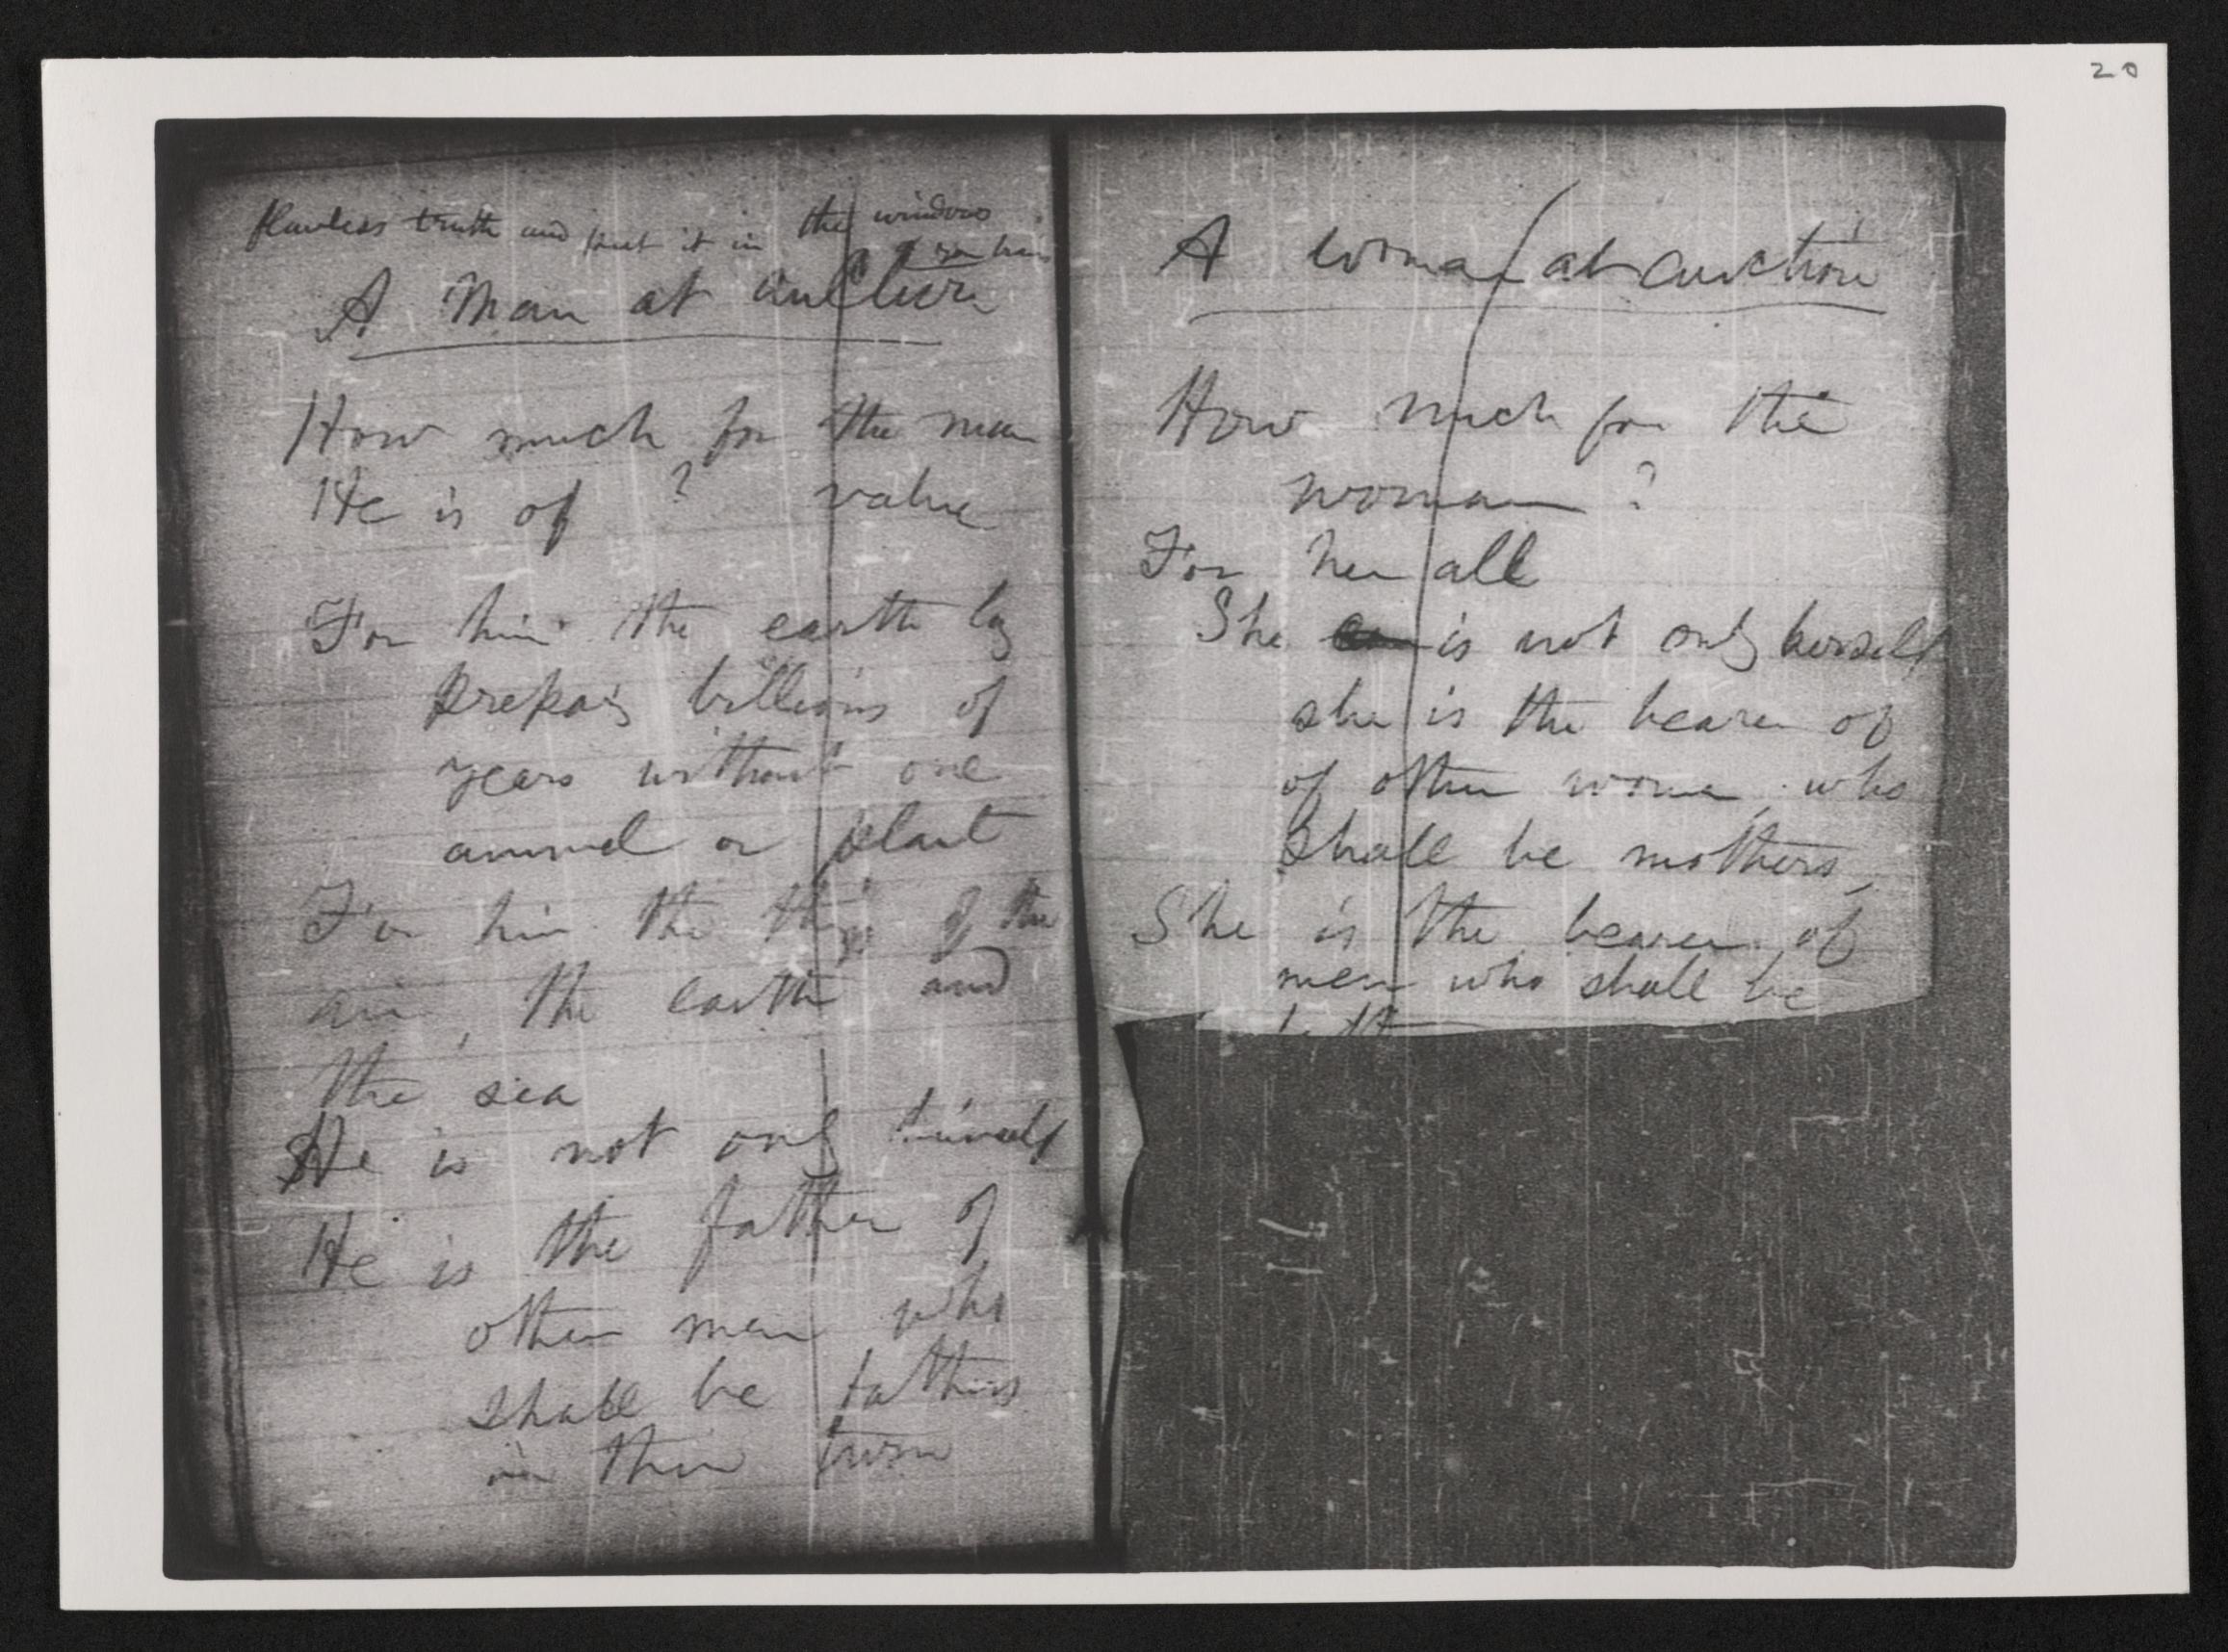 20
flawless truth and put it in the window
A Man at auction
How much for the man
He is of ? value
For him the earth lay
preparing billions of
years without one
animal or plant
For him the things of the
air, the earth and
the sea
He is not only himself
He is the father of
other men who
shall be fathers
in their turn
A woman at auction
How much for the
woman ?
For her all
She is not only herself
she is the bearer of
of other women, who
shall be mothers,
She is the bearer of
men who shall be